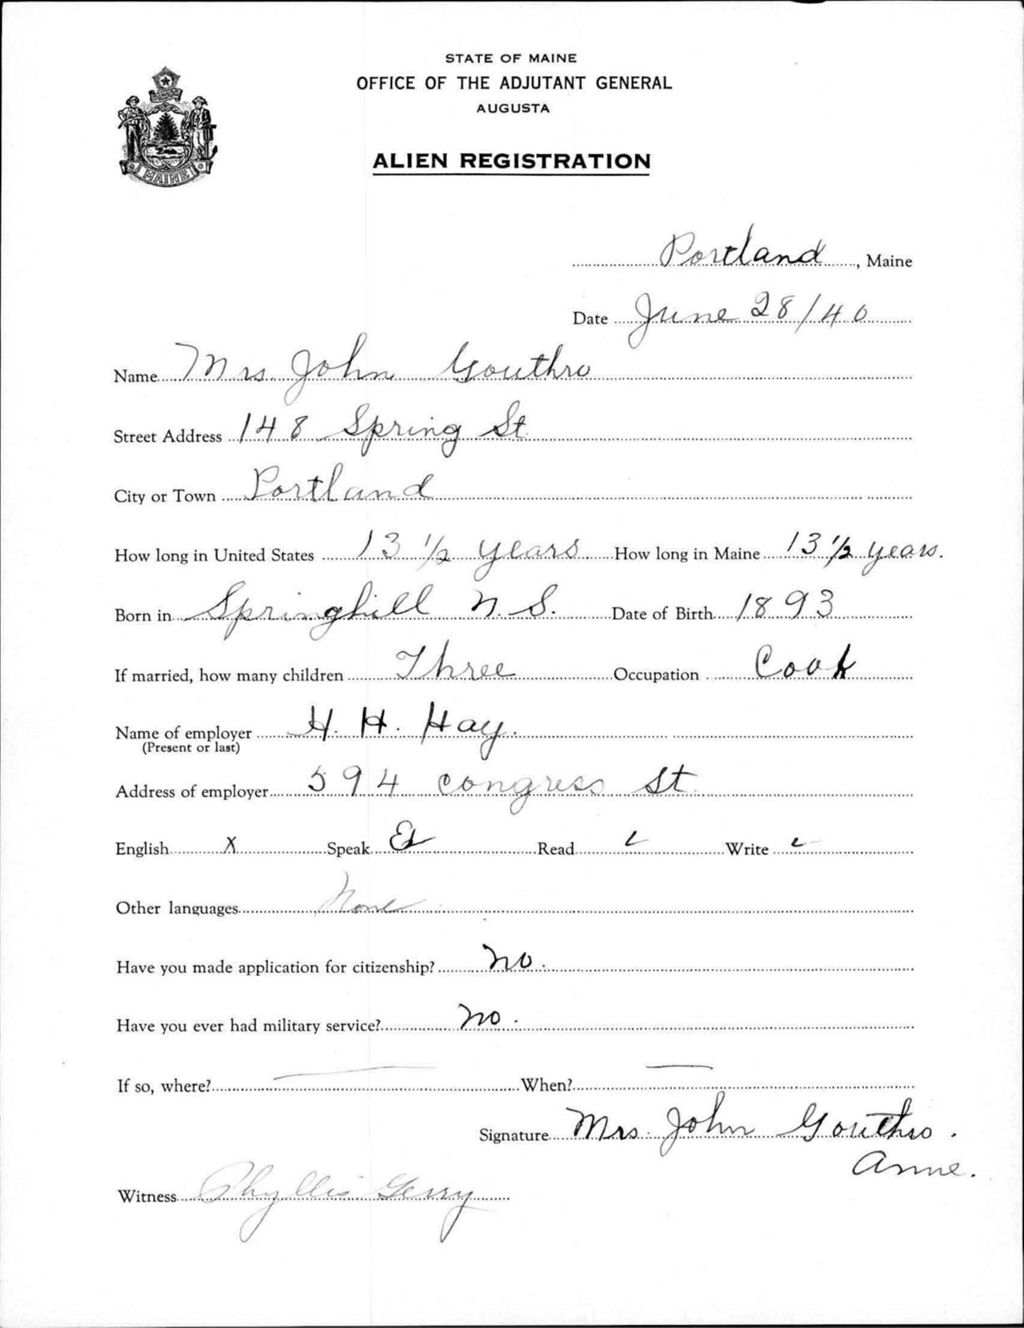 STATE OF MAINE
OFFICE OF THE ADJUTANT GENERAL
AUGUSTA
ALIEN REGISTRATION
MAINE
Portland, Maine
Date June 28/40
Name Mrs John Gouthro
Street Address 148 Spring St
City or Town Portland
How long in United States 13 1/2 years How long in Maine 13 1/2 years.
Born in Springhill N. S. Date of Birth 1893
If married, how many children Three Occupation Cook
Name of employer H. H. Hay.
(Present or last)
Address of employer 594 Congress St
English X Speak Read Write
Other languages None
Have you made application for citizenship? No.
Have you ever had military service? No.
If so, where? — When? —
Signature Mrs. John Gouthro.
Anne.
Witness Phyllis Gerry